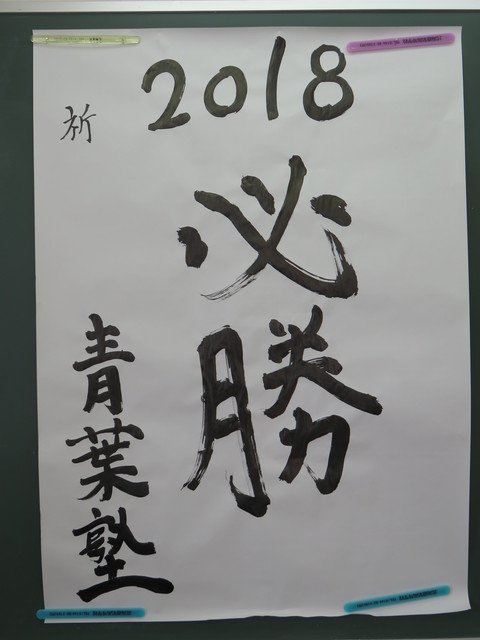 2018
祈
必勝
青葉塾